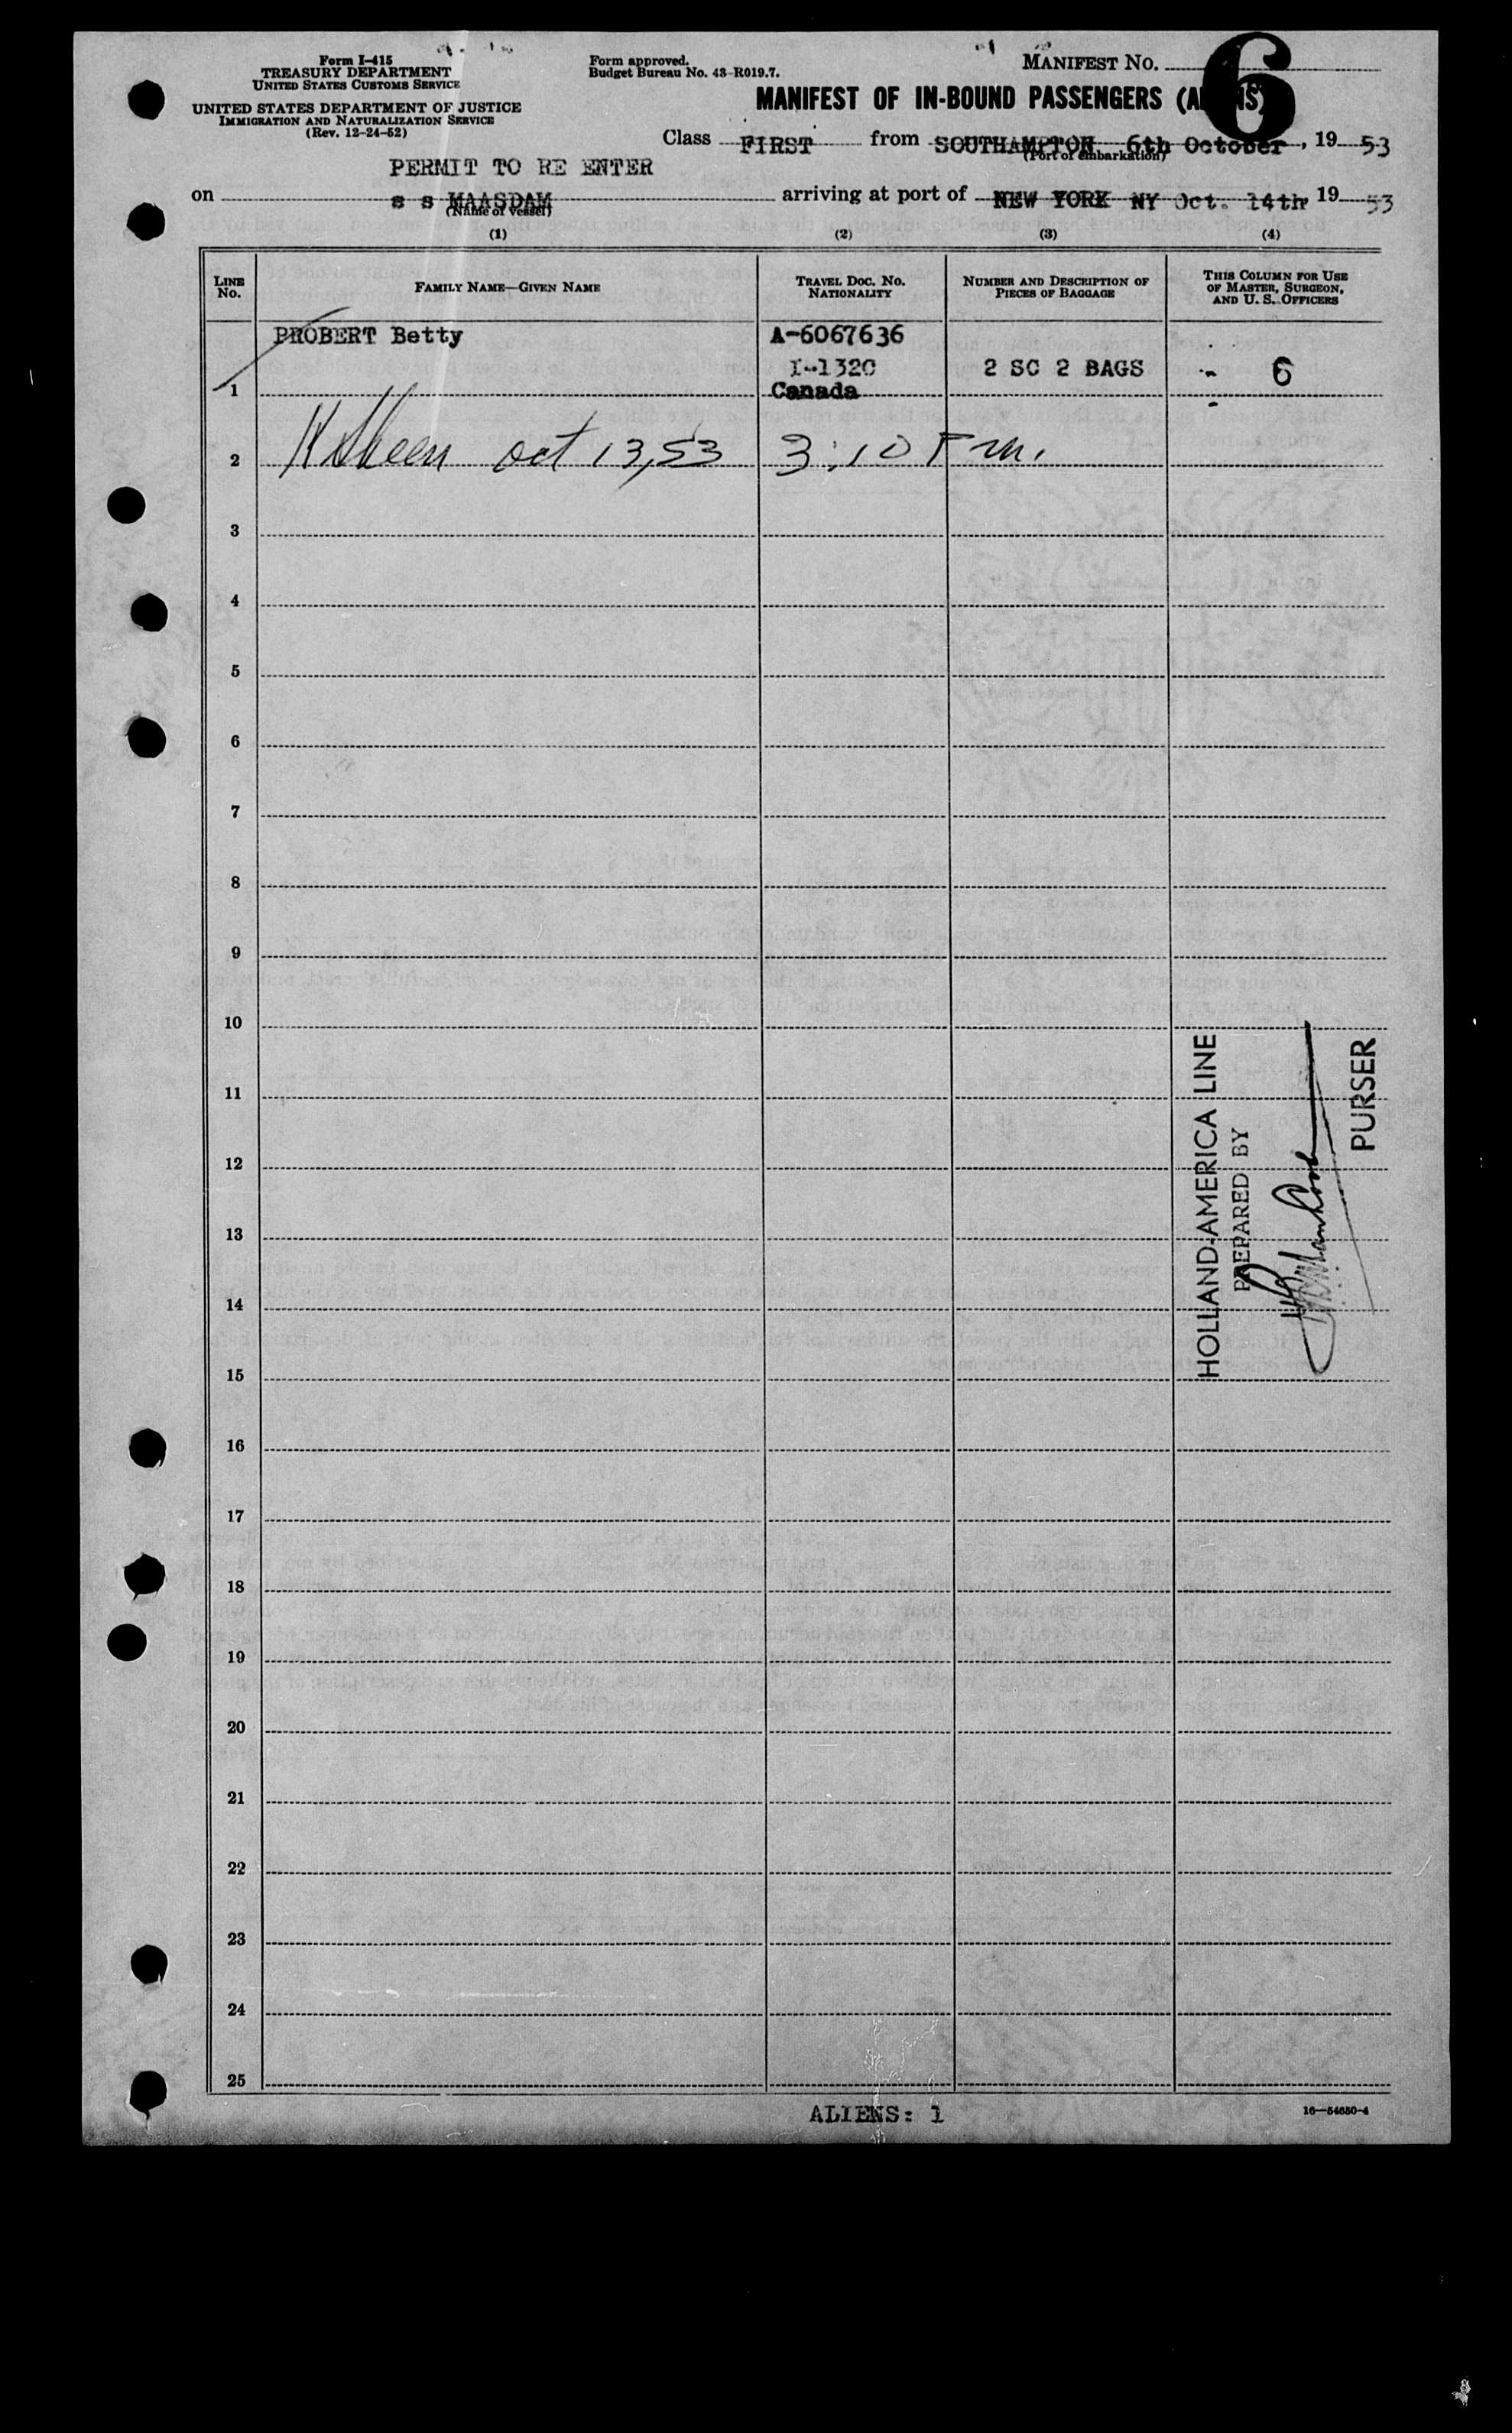 Form I-415
TREASURY DEPARTMENT
UNITED STATES CUSTOMS SERVICE
UNITED STATES DEPARTMENT OF JUSTICE
IMMIGRATION AND NATURALIZATION SERVICE
(Rev. 12-24-52)
Form approved.
Budget Bureau No. 43-R019.7.
MANIFEST NO.
6
MANIFEST OF IN-BOUND PASSENGERS
Class FIRST from SOUTHAMPTON 6th October, 19 53
(Port of embarkation)
PERMIT TO RE ENTER
on s s MAASDAM arriving at port of NEW YORK NY Oct. 14th 19 53
(Name of vessel)
(1) (2) (3) (4)
LINE No.
FAMILY NAME—GIVEN NAME
TRAVEL DOC. NO. NATIONALITY
NUMBER AND DESCRIPTION OF PIECES OF BAGGAGE
THIS COLUMN FOR USE OF MASTER, SURGEON, AND U. S. OFFICERS
PROBERT Betty A-6067636
I-1320 2 SC 2 BAGS - 6
1 Canada
2 oct 13, 53 3:10 Pm.
3
4
5
6
7
8
9
10
11
12
13
14
15
16
17
18
19
20
21
22
23
24
25
HOLLAND-AMERICA LINE
PREPARED BY
PURSER
ALIENS: 1
16—54650-4